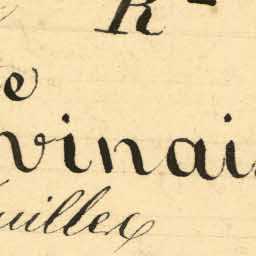 R
e
vinai
uillex